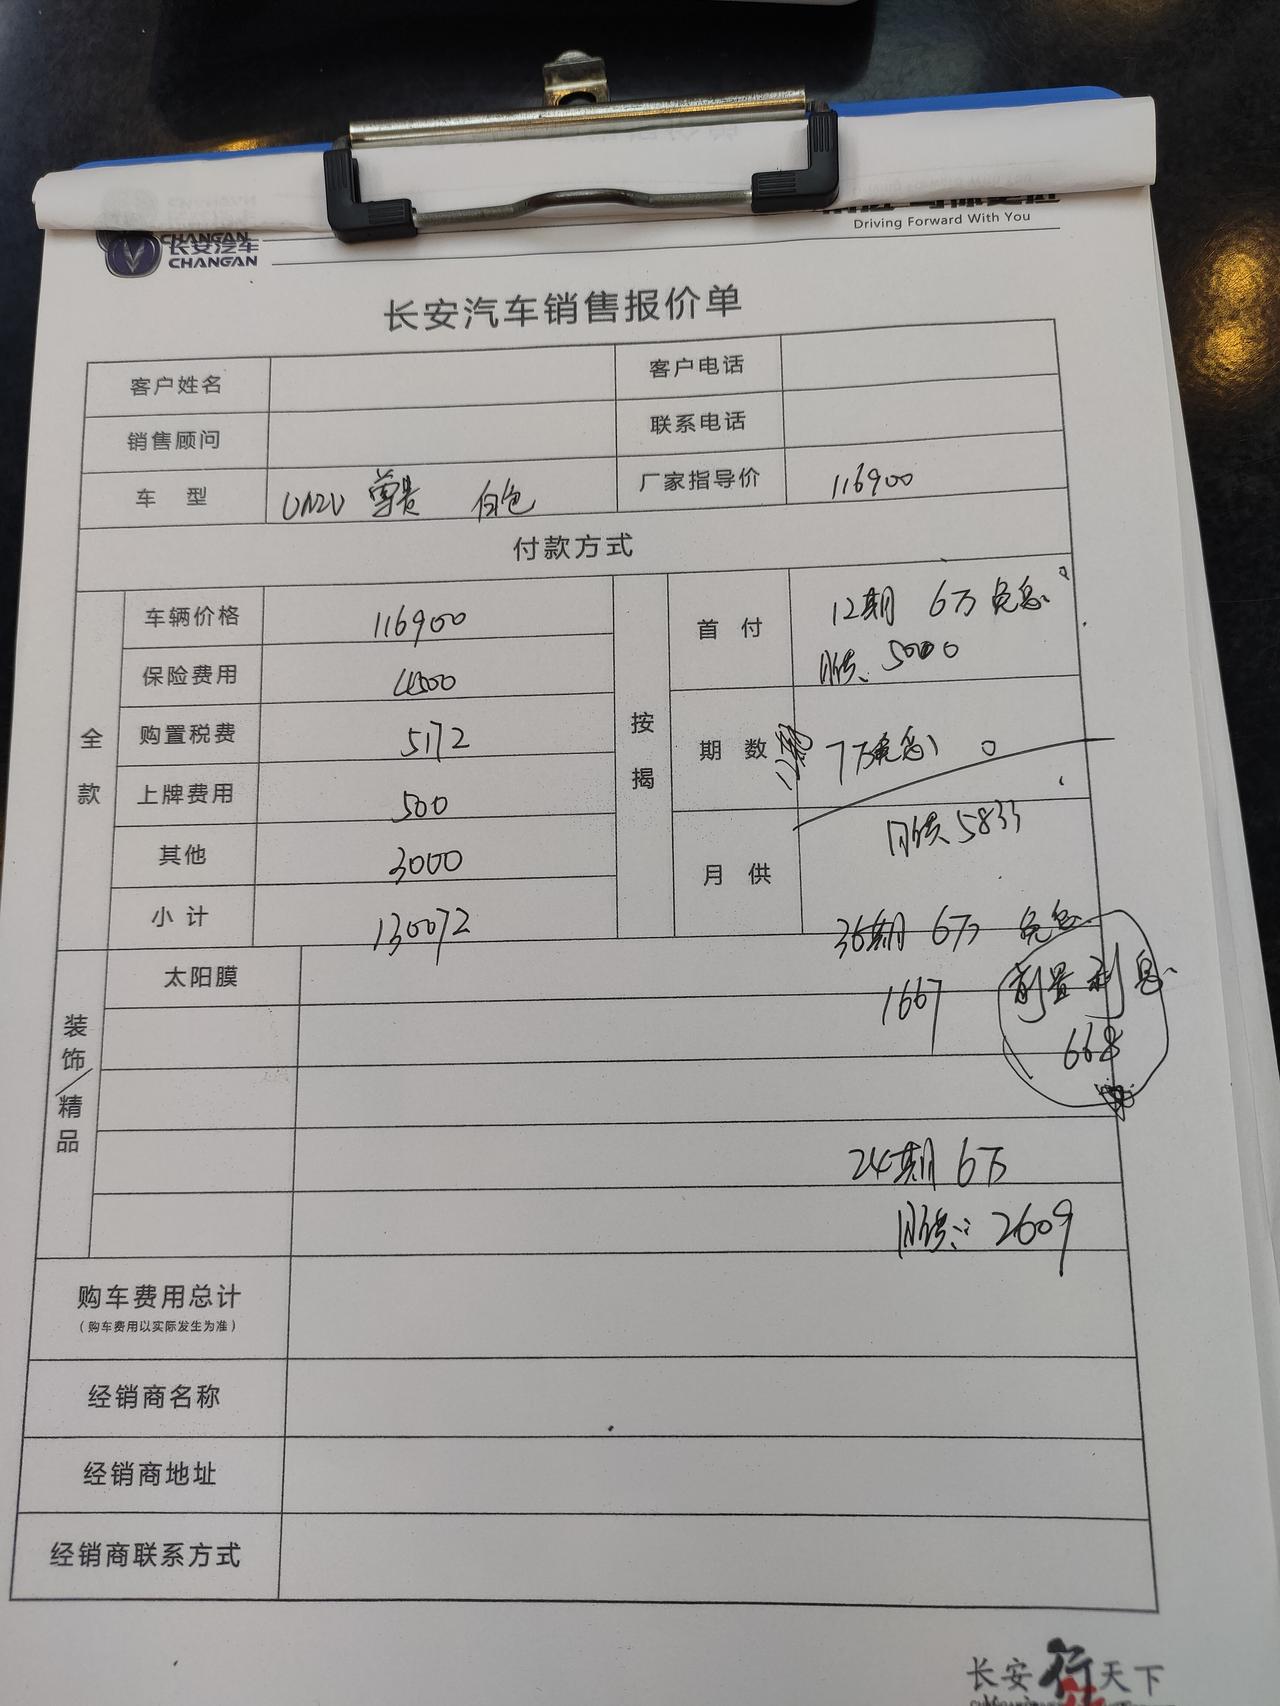 Driving Forward With You
长安汽车
CHANGAN
长安汽车销售报价单
客户姓名 客户电话
销售顾问 联系电话
车 型 UNIV 尊贵 白色 厂家指导价 116900
付款方式
全款
车辆价格 116900
保险费用 4500
购置税费 5172
上牌费用 500
其他 3000
小计 130072
按揭
首 付 12期 6万 免息。
月供 5000
期 数 12期 7万免息
月供 5833
月 供
36期 6万 免息
1667
前置利息
668
24期 6万
月供: 2609
装饰/精品
太阳膜
购车费用总计
(购车费用以实际发生为准)
经销商名称
经销商地址
经销商联系方式
长安行天下